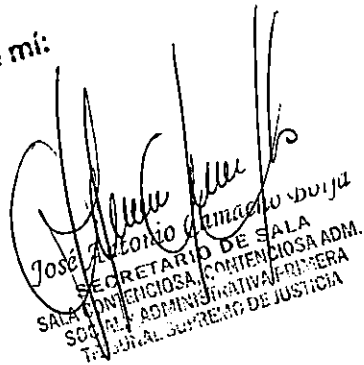 mí:
José Antonio Camacho Borja
SECRETARIO DE SALA
SALA CONTENCIOSA, CONTENCIOSA ADM.
SOCIAL Y ADMINISTRATIVA PRIMERA
TRIBUNAL SUPREMO DE JUSTICIA